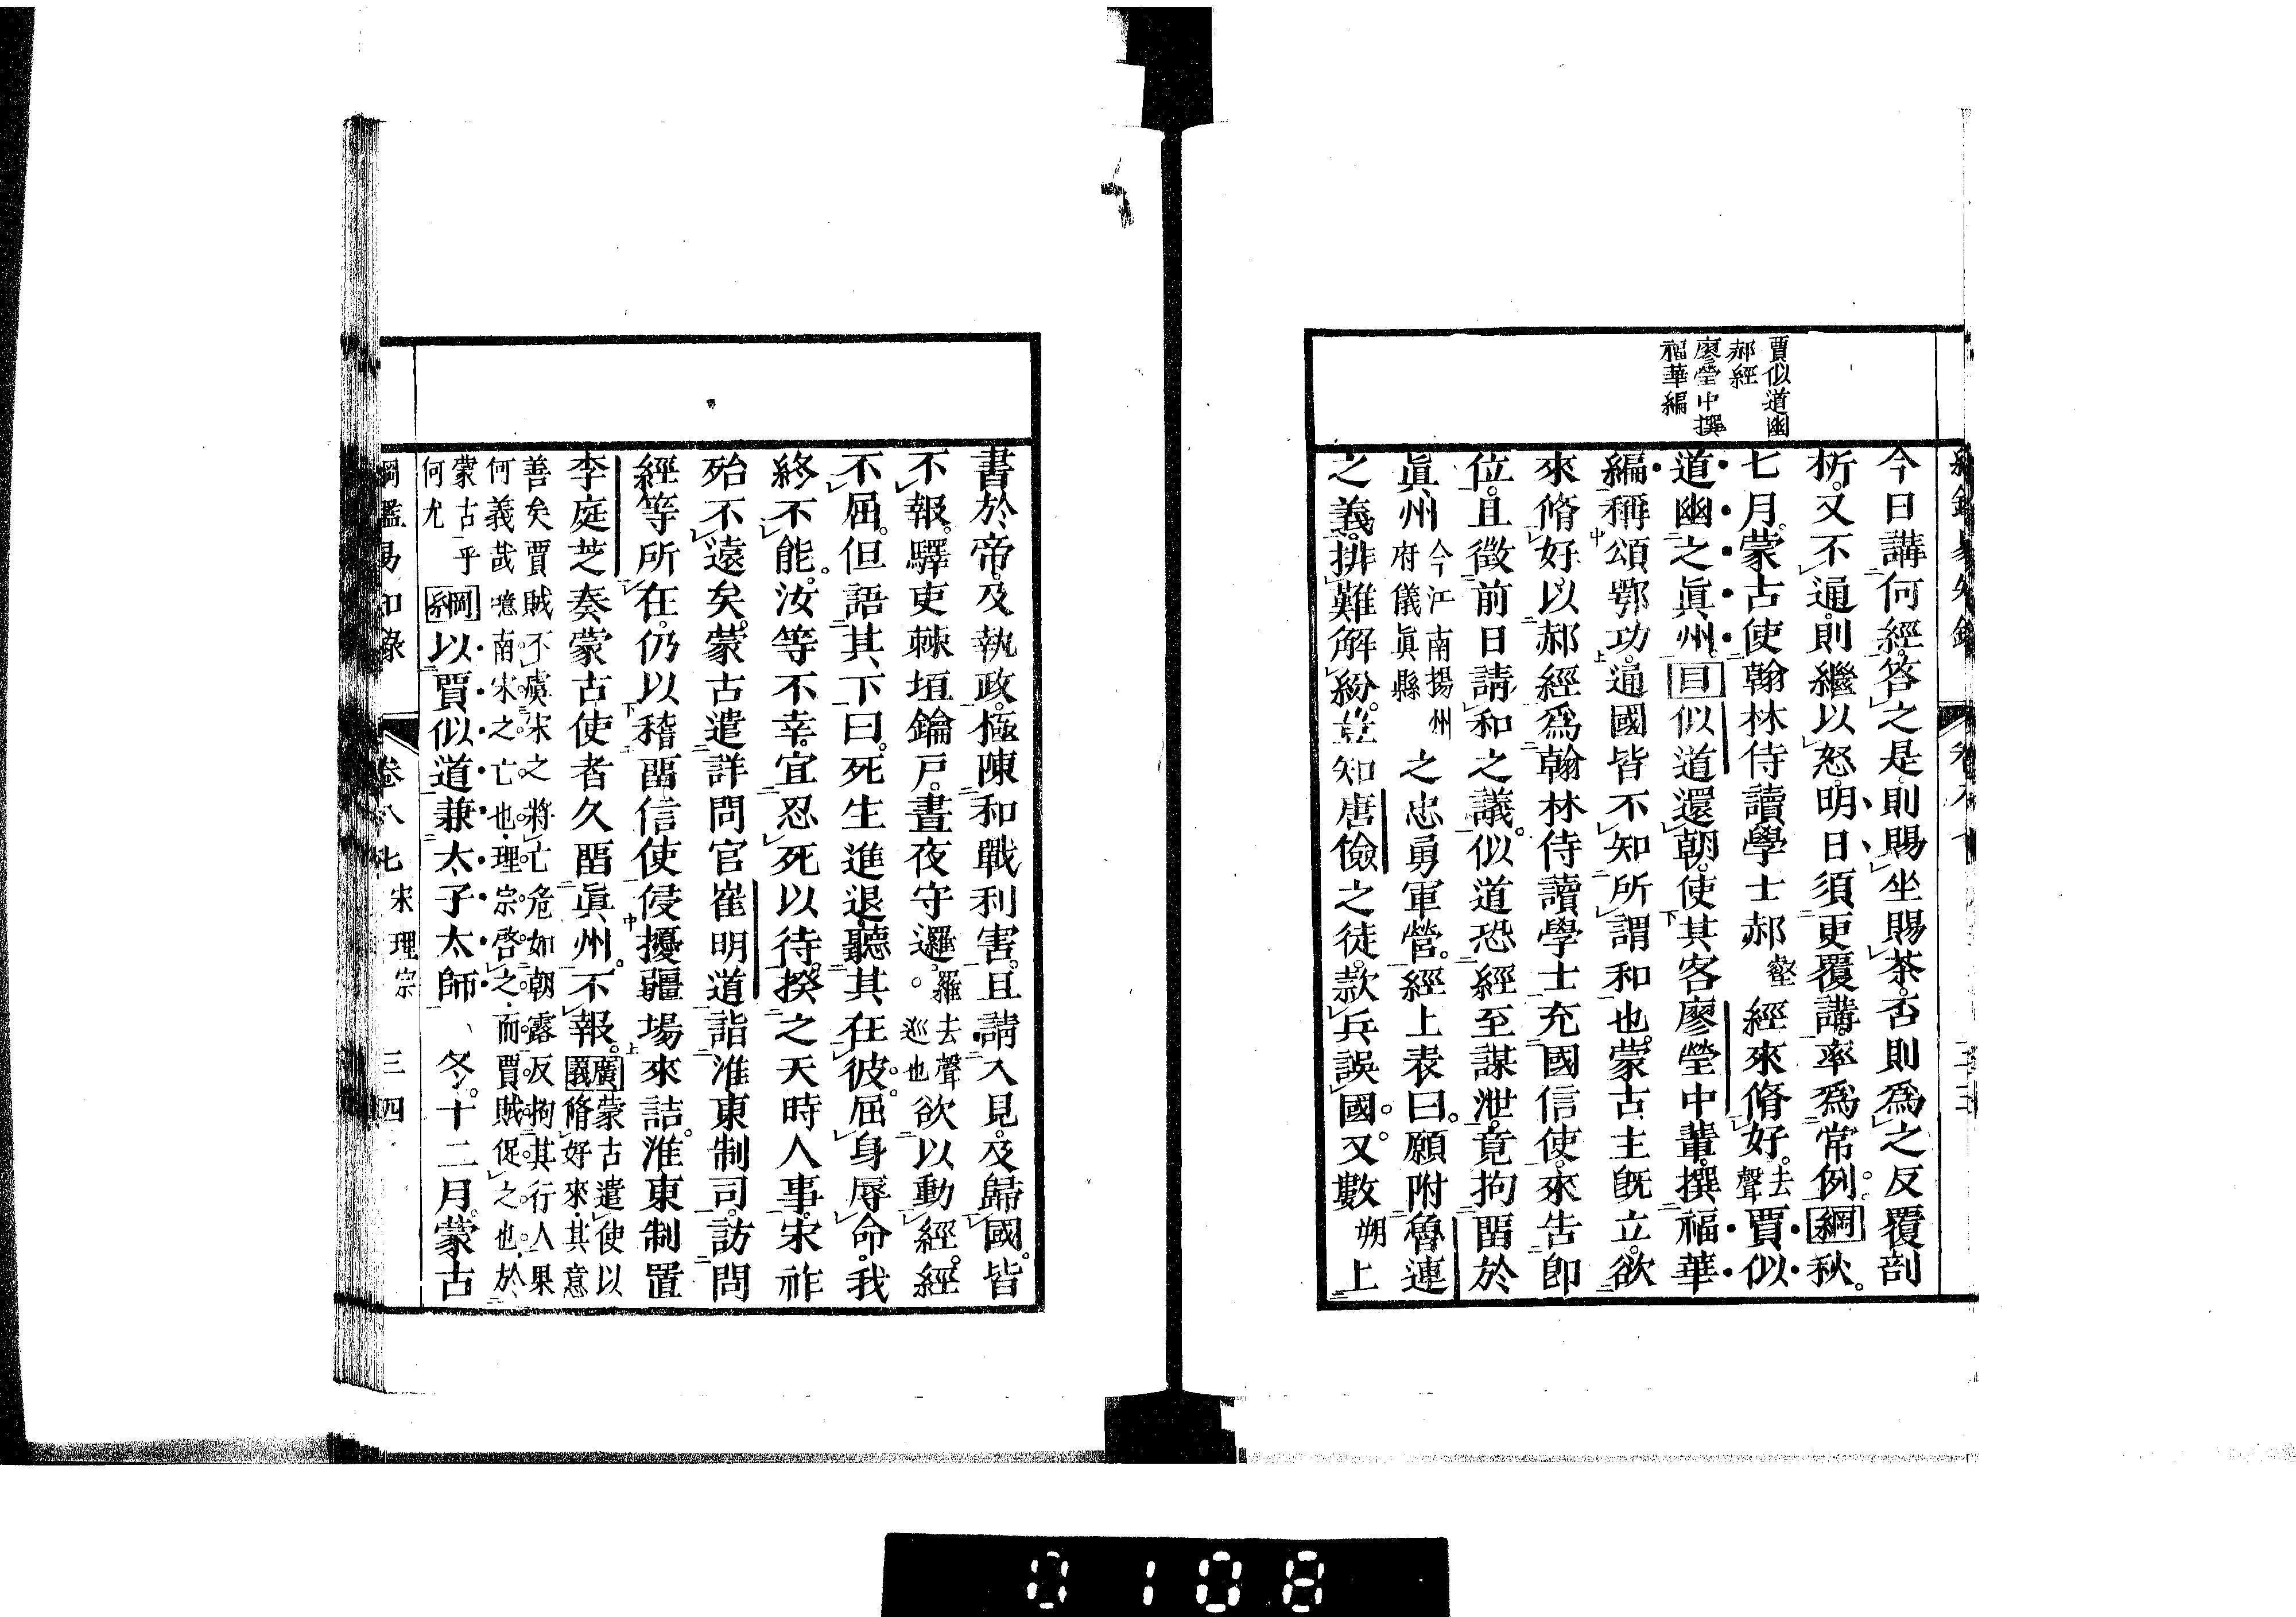 賈似道幽
郝經
廖瑩中撰
福華編
今日講何經。答之是。則賜坐賜茶。否則爲之反覆剖
析。又不通。則繼以怒。明日須更覆講。率爲常例。綱秋。
七月。蒙古使翰林侍讀學士郝壑經來脩好。去聲賈似
道幽之眞州。目似道還朝。使其客廖瑩中輩撰福華
編。稱頌鄂功。通國皆不知所謂和也。蒙古主既立。欲
來脩好。以郝經爲翰林侍讀學士充國信使。來告即
位。且徵前日請和之議。似道恐經至謀泄。竟拘畱於
眞州今江南揚州府儀眞縣之忠勇軍營。經上表曰。願附魯連
之義。排難解紛。豈知唐儉之徒。款兵誤國。又數朔上
書於帝。及執政。極陳和戰利害。且請入見。及歸國。皆
不報。驛吏棘垣鑰戸。晝夜守邏。羅去聲巡也欲以動經。經
不屈。但語其下曰。死生進退。聽其在彼。屈身辱命。我
終不能。汝等不幸。宜忍死以待。揆之天時人事。宋祚
殆不遠矣。蒙古遣詳問官崔明道詣淮東制司。訪問
經等所在。仍以稽畱信使侵擾疆場來詰。淮東制置
李庭芝奏。蒙古使者久畱眞州。不報。廣義蒙古遣使以脩好來。其意
善矣。賈賊不虞宋之將亡。危如朝露。反拘其行人。果
何義哉。噫。南宋之亡也。理宗啓之。而賈賊促之也。於
蒙古乎何尤綱以賈似道兼太子太師 冬。十二月。蒙古
綱鑑易知録 卷八七 宋理宗 三四
0108